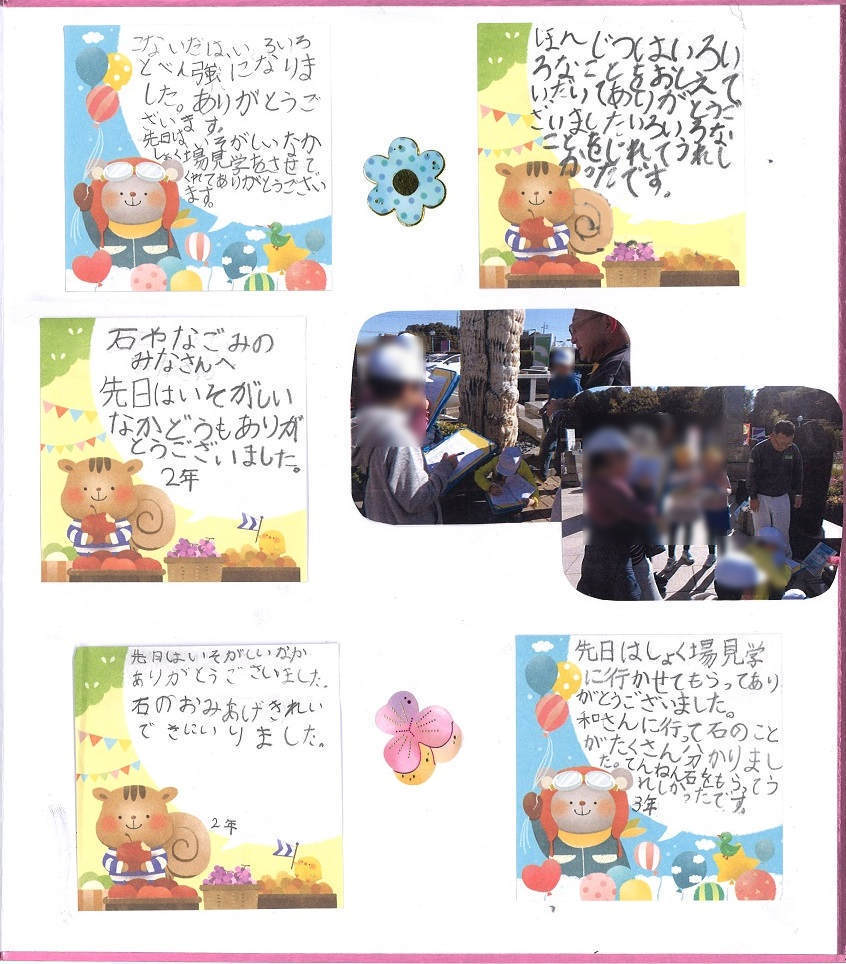 こないだは、いろいろ
とべん強になりま
した。ありがとうご
ざいます。
先日は、いそがしいなか
しょく場見学をさせて
くれてありがとうござい
ます。
ほんじつはいろい
ろなことをおしえて
いただいてありがとうご
ざいましたいろいろな
ことをしれてうれし
かったです。
石やなごみの
みなさんへ
先日はいそがしい
なかどうもありが
とうございました。
2年
先日はいそがしいなか
ありがとうございました。
石のおみあげきれい
できにいりました。
2年
先日はしょく場見学
に行かせてもらってあり
がとうございました。
和さんに行って石のこと
がたくさん分かりまし
た。てんねん石をもらってう
れしかったです。
3年